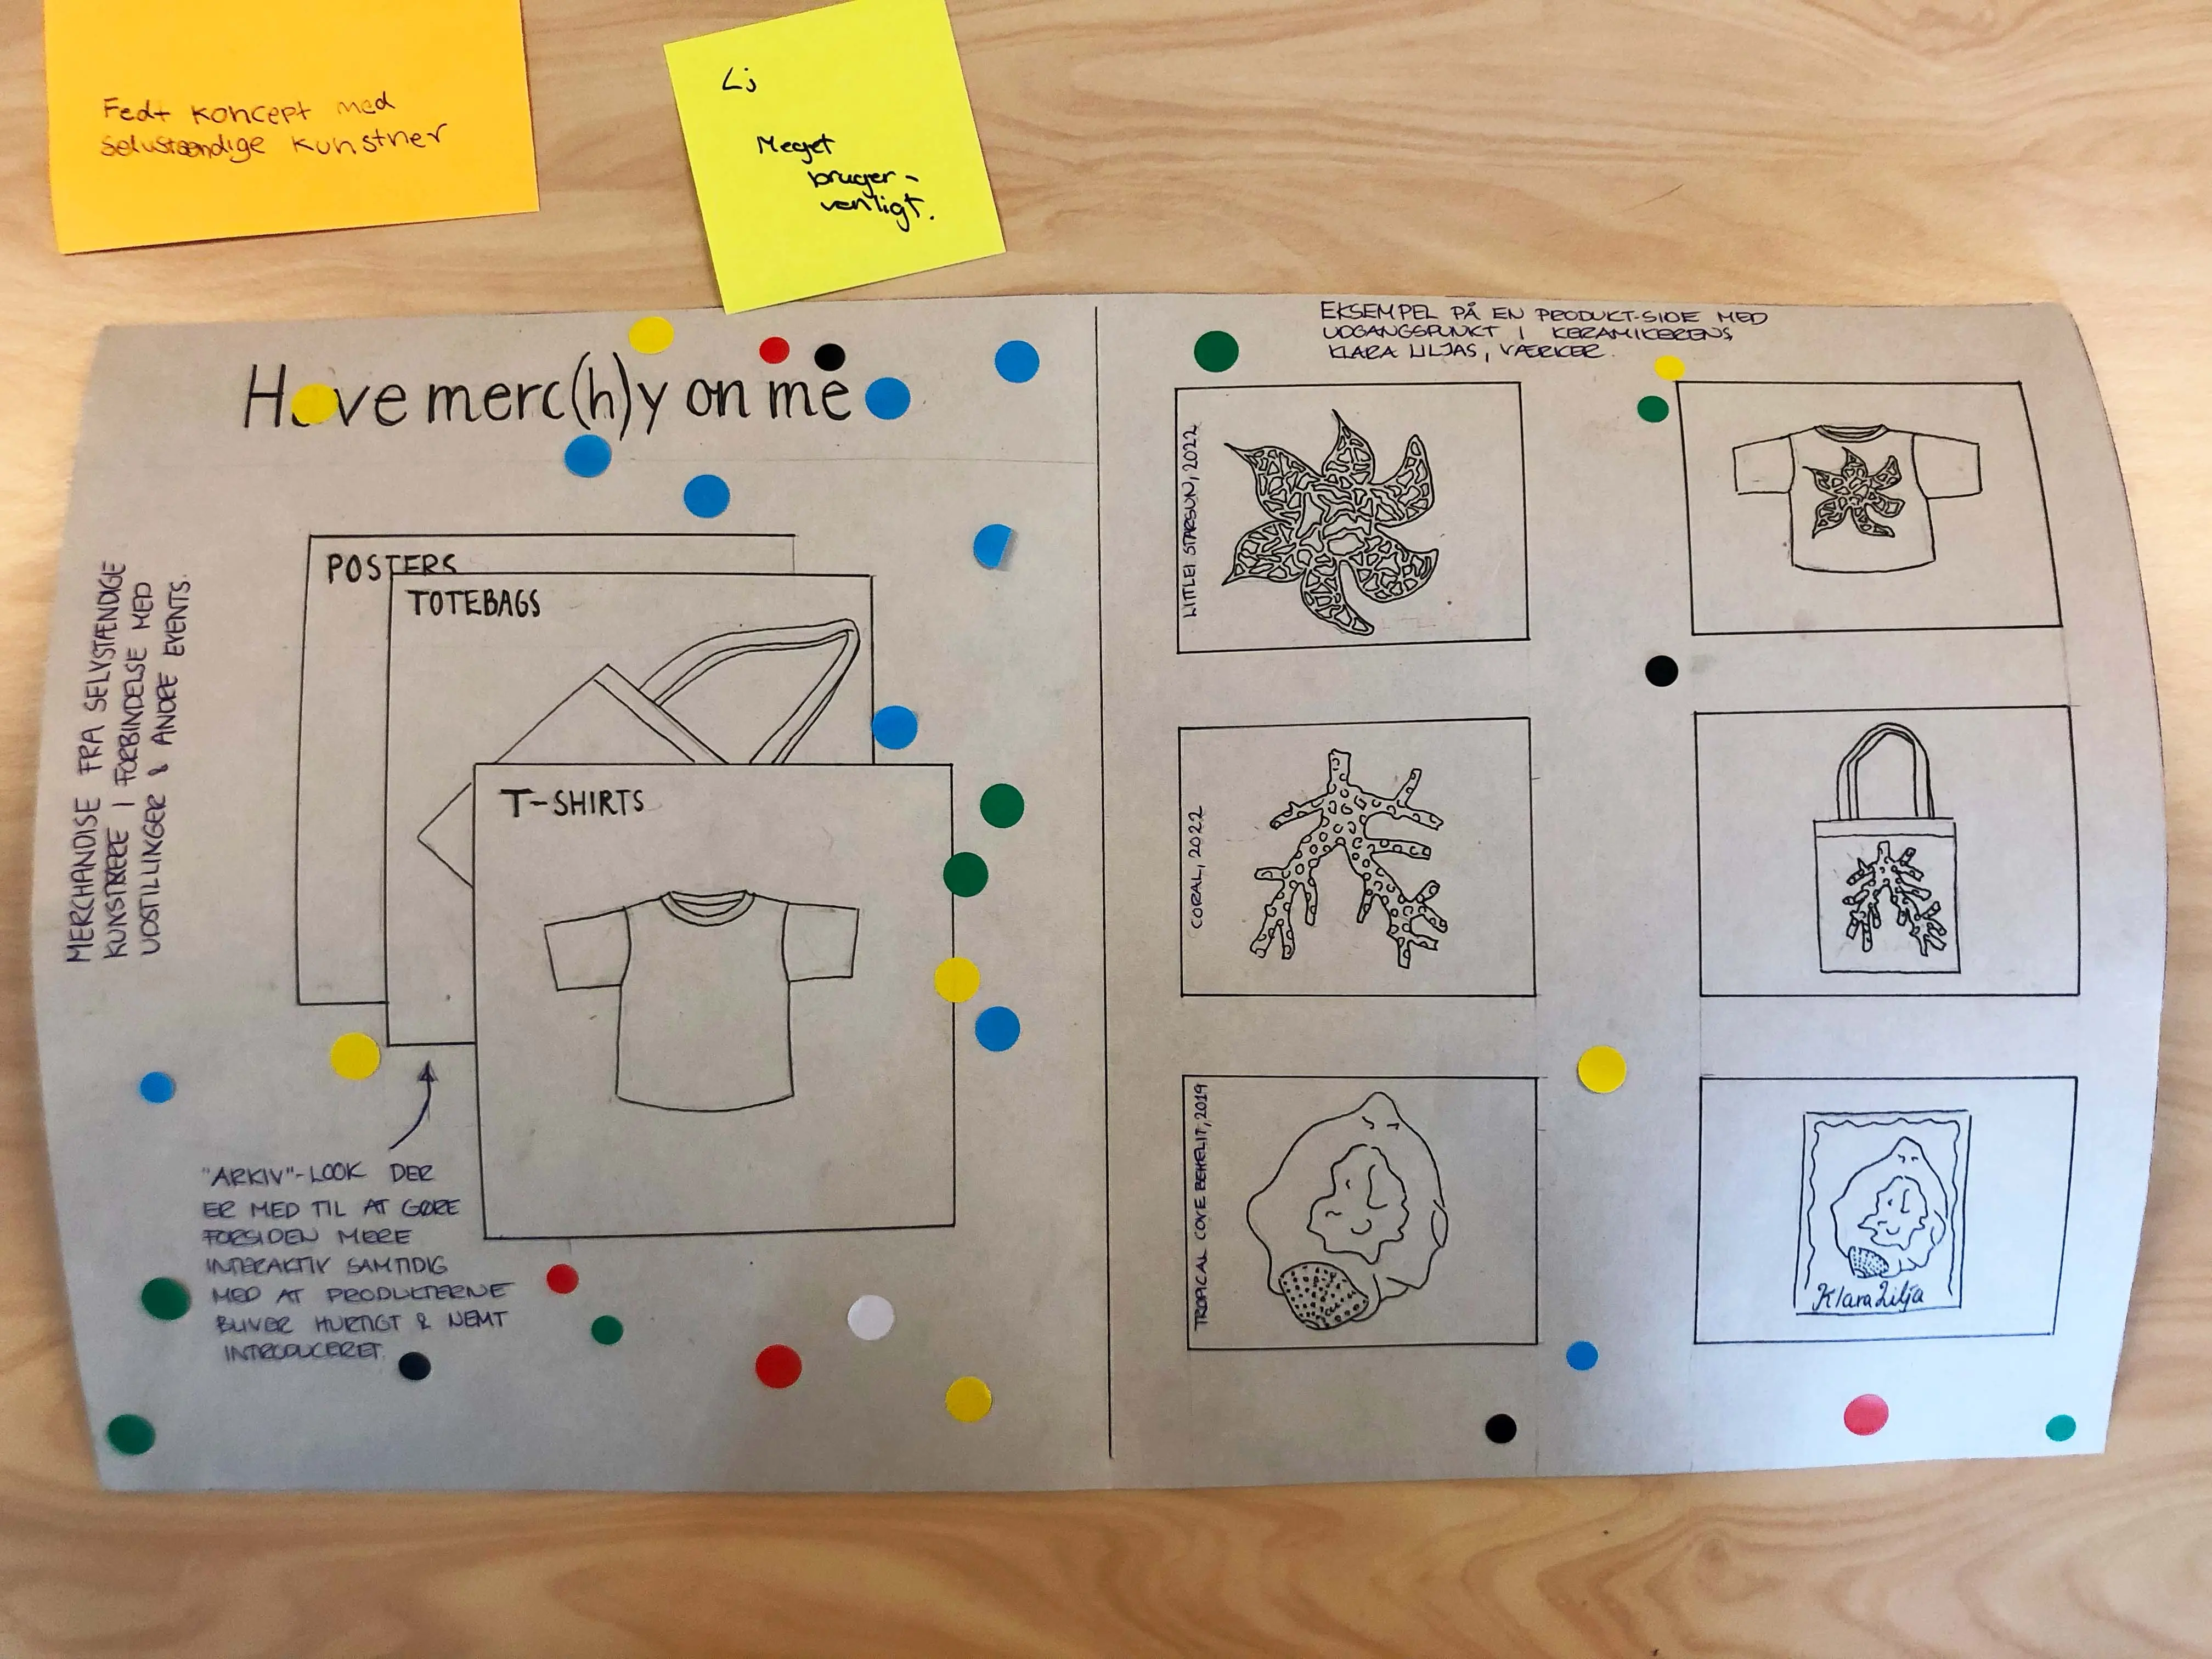 Fedt koncept med
selvstændige kunstner
Lj
Meget
bruger-
venligt.
Have merc(h)y on me
MERCHANDISE FRA SELVSTÆNDIGE
KUNSTNERE I FORBINDELSE MED
UDSTILLINGER & ANDRE EVENTS.
POSTERS
TOTEBAGS
T-SHIRTS
"ARKIV"-LOOK DER
ER MED TIL AT GØRE
FORSIDEN MERE
INTERAKTIV SAMTIDIG
MED AT PRODUKTERNE
BLIVER HURTIGT & NEMT
INTRODUCERET.
EKSEMPEL PÅ EN PRODUKT-SIDE MED
UDGANGSPUNKT I KERAMIKERENS,
KLARA LILJAS, VÆRKER.
LITTLEI STARSUN, 2022
CORAL, 2022
TROPICAL COVE BEHELIT, 2019
Klara Lilja